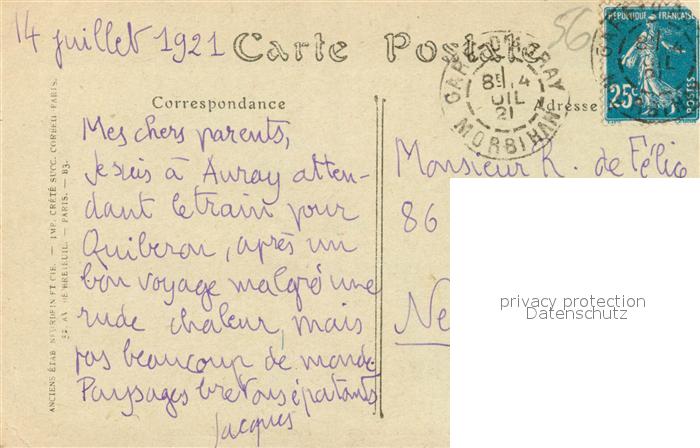 14 juillet 1921
Carte Postale
56
RÉPUBLIQUE FRANÇAISE
25c
POSTES
GARE D'AURAY
MORBIHAN
21
Correspondance
Adresse
Mes chers parents,
Je suis à Auray atten-
dant le train pour
Quiberon, après un
bon voyage malgré une
rude chaleur, mais
pas beaucoup de monde.
Paysages bretons épatants
Jacques
Monsieur R. de Félice
86
Ne
privacy protection
Datenschutz
ANCIENS ÉTAB. NEURDEIN ET CIE. — IMP. CRÉTÉ SUCC. CORBEIL PARIS.
52, AV. DE BRETEUIL. — PARIS. — B3.